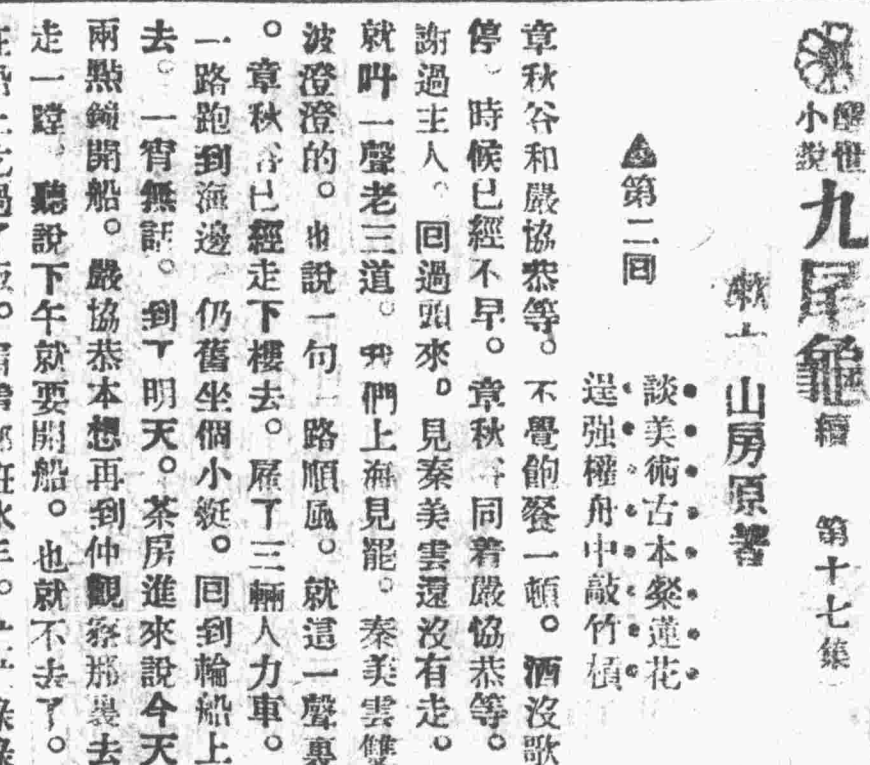 醒世小說 九尾龜 續 第十七集
山房原著
▲第二回
談美術古本粲蓮花
逞强權舟中敲竹槓
章秋谷和嚴協恭等。不覺飽餐一頓。酒沒歌
停。時候已經不早。章秋谷同着嚴協恭等。
謝過主人。回過頭來。見秦美雲還沒有走。
就叫一聲老三道。我們上海見罷。秦美雲雙
波澄澄的。也說一句一路順風。就這一聲裏
。章秋谷已經走下樓去。雇了三輛人力車。
一路跑到海邊 仍舊坐個小艇。回到輪船上
去。一宵無話。到了明天。茶房進來說今天
兩點鐘開船。嚴協恭本想再到仲觀察那裏去
走一蹚。聽說下午就要開船。也就不去了。